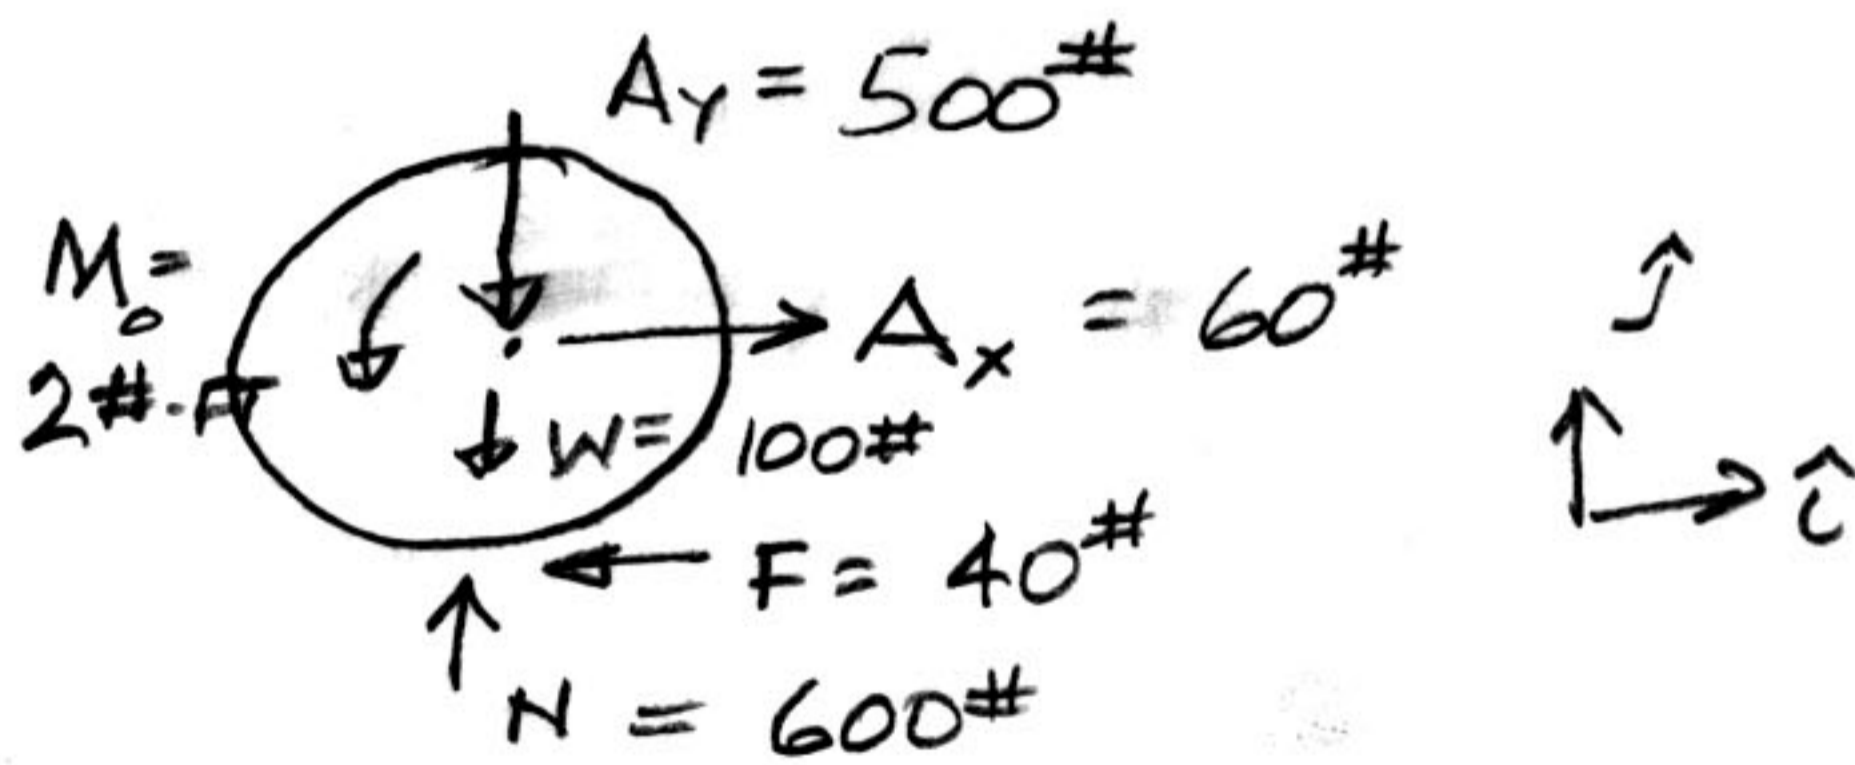 A_Y = 500#
M_o =
2#·FT
A_x = 60#
ĵ
W = 100#
î
F = 40#
N = 600#